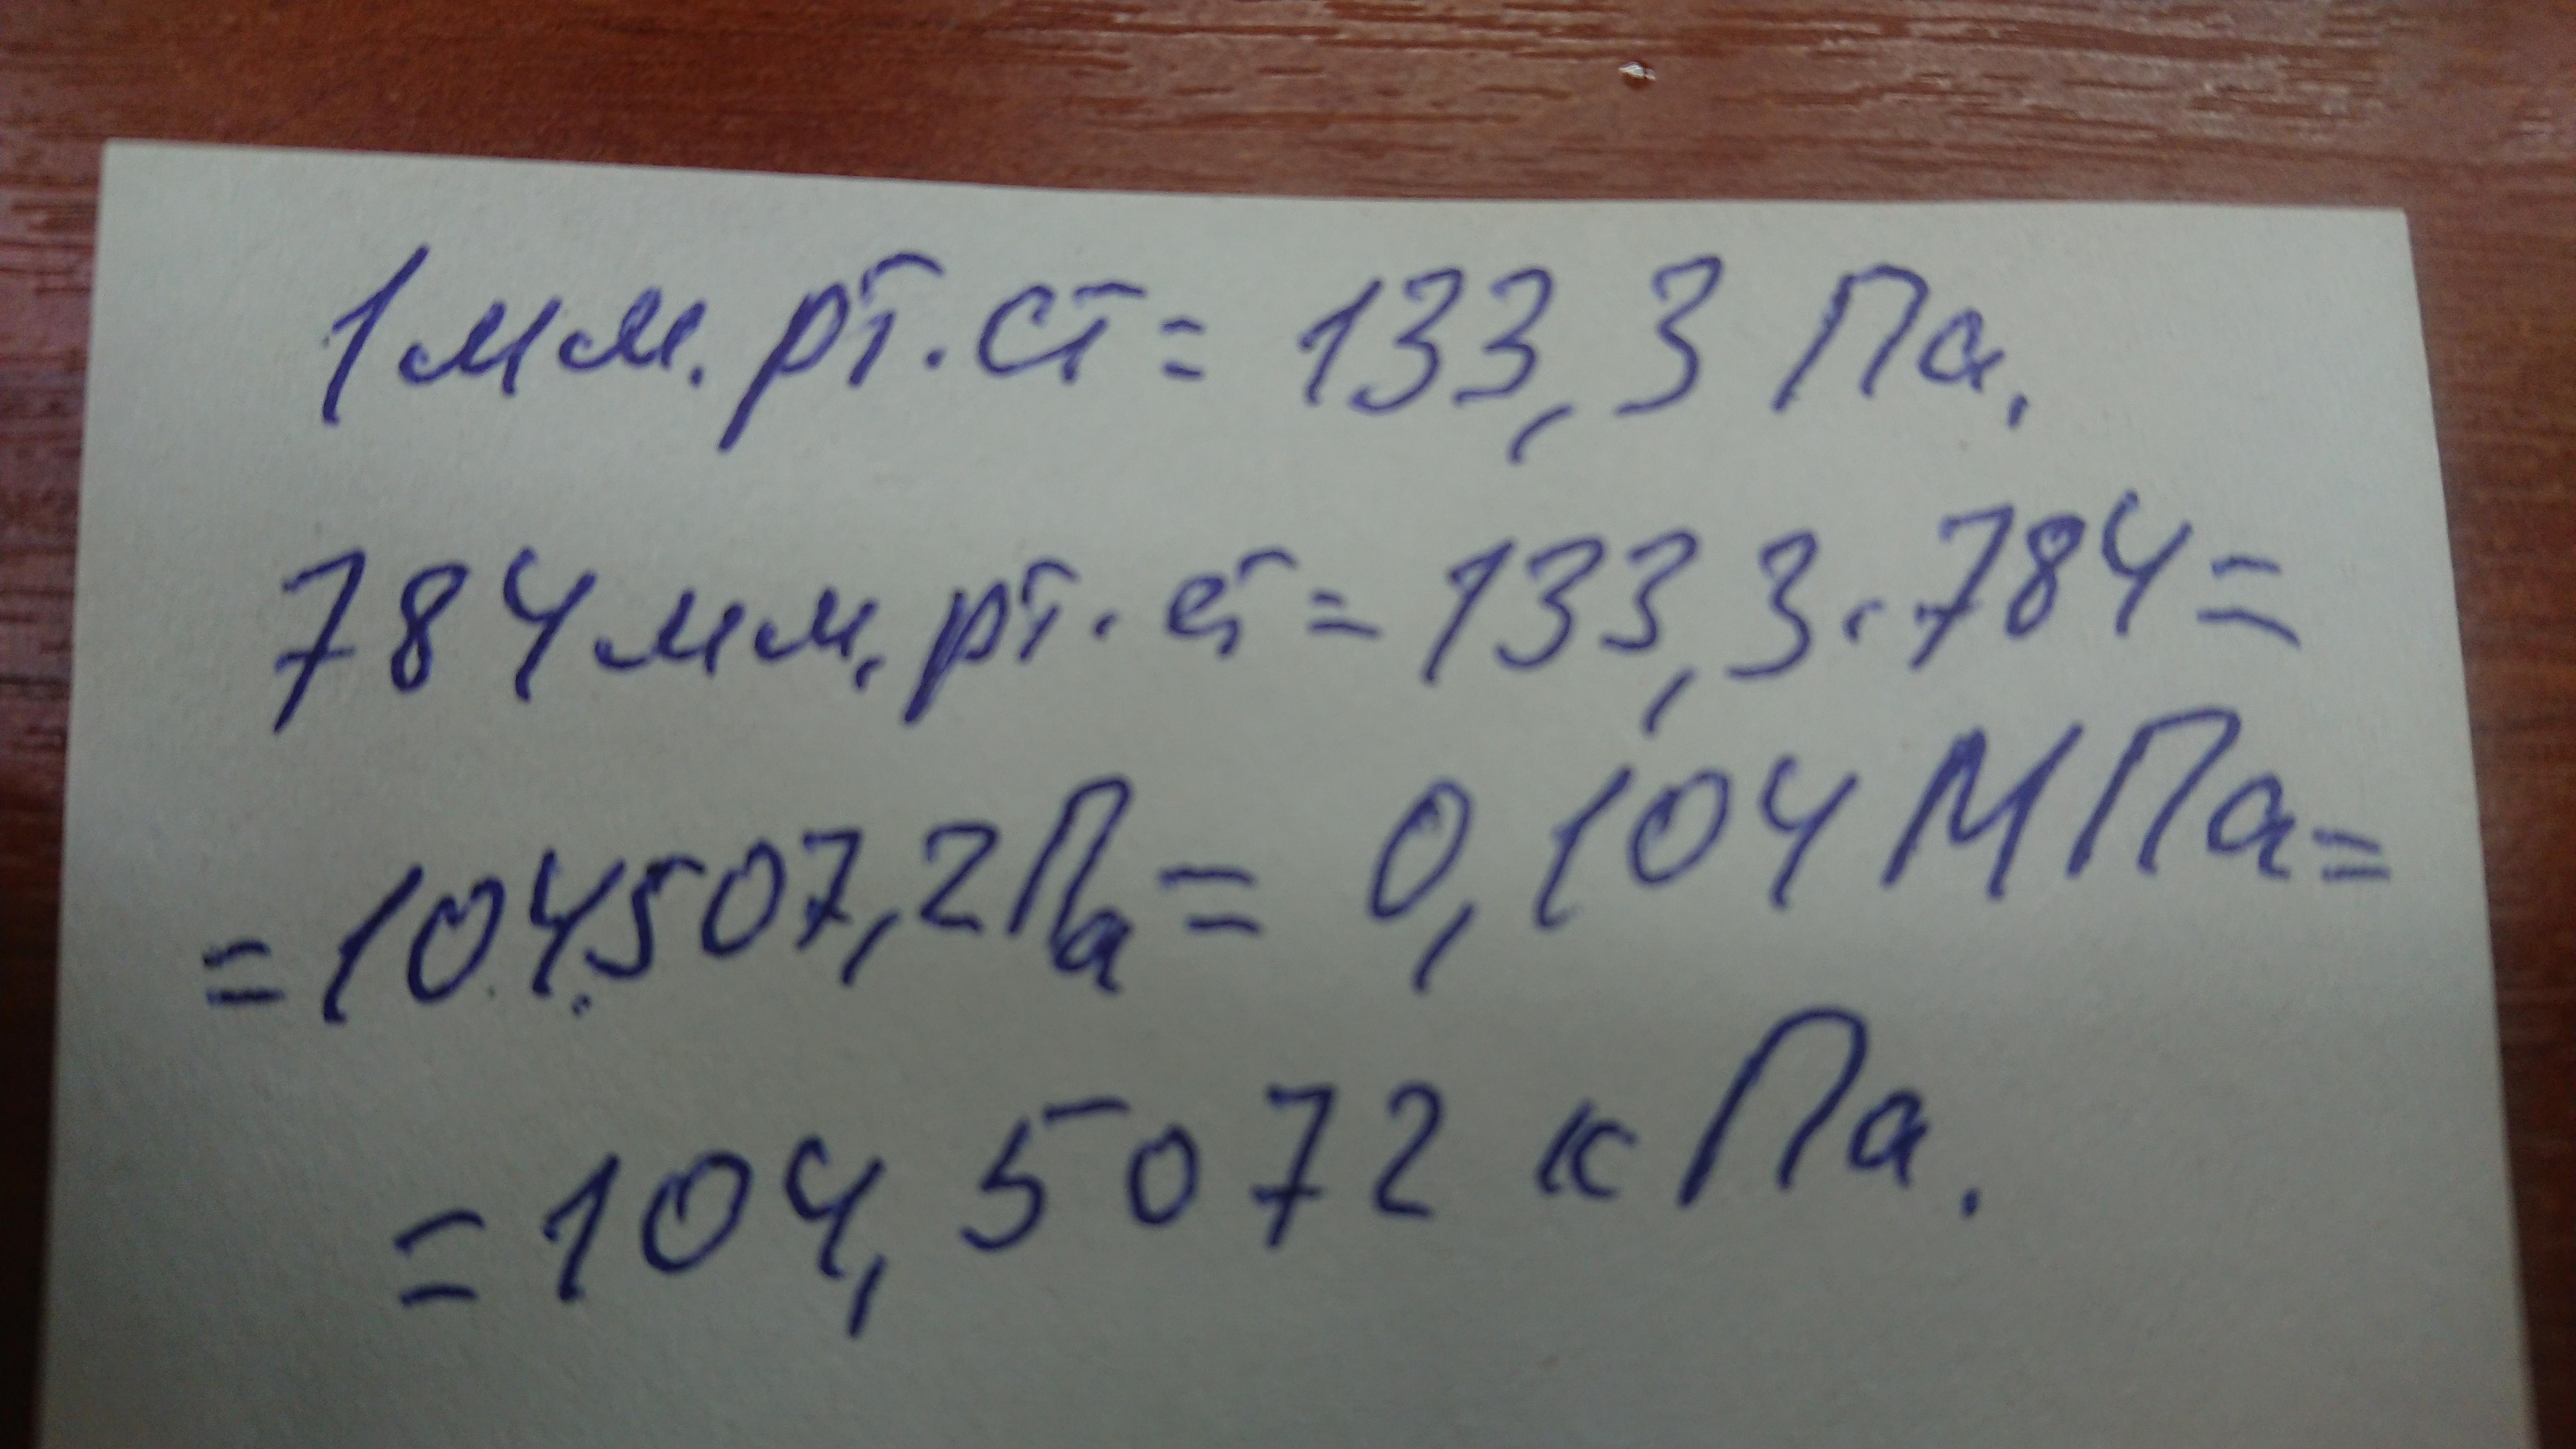 1 мм. рт. ст = 133,3 Па.
784 мм. рт. ст = 133,3 · 784 =
= 104507,2 Па = 0,104 МПа =
= 104,5072 кПа.